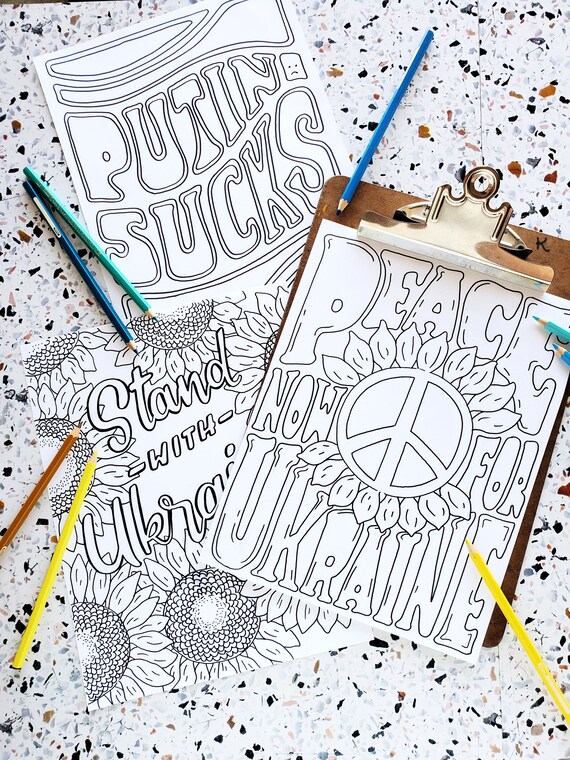 PUTIN
SUCKS
Stand
-WITH-
Ukrai
PEACE
NOW FOR
UKRAINE
K